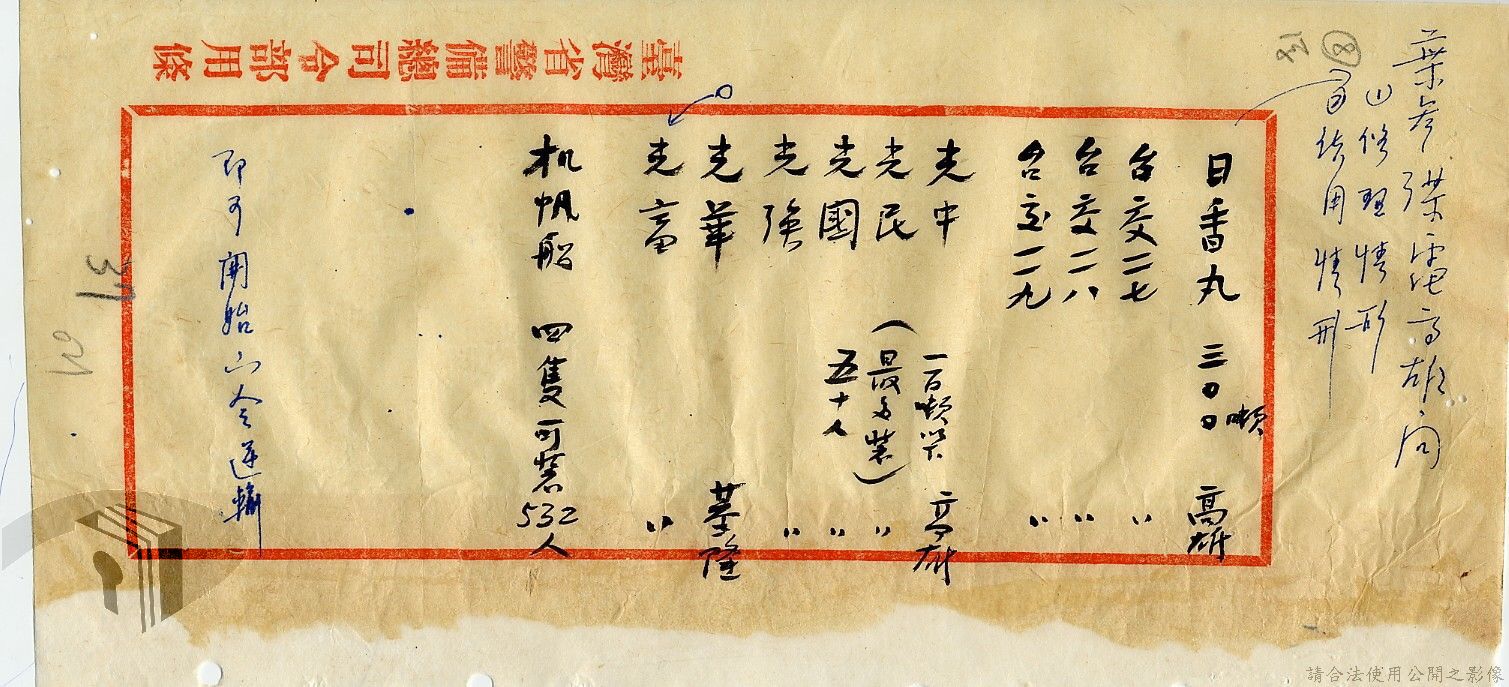 臺灣省警備總司令部用條
葉參謀電高雄問
(1)修理情形
(2)使用情形
⑧
日香丸 三〇〇噸 高雄
台交一一七 〃
台交一一八 〃
台交一一九 〃
光中 一百噸 高雄
光民 (最多裝) 〃
光國 五十人 〃
光強 〃
光華 基隆
光富 〃
机帆船 四隻可裝532人
即可開始下令運輸
請合法使用公開之影像